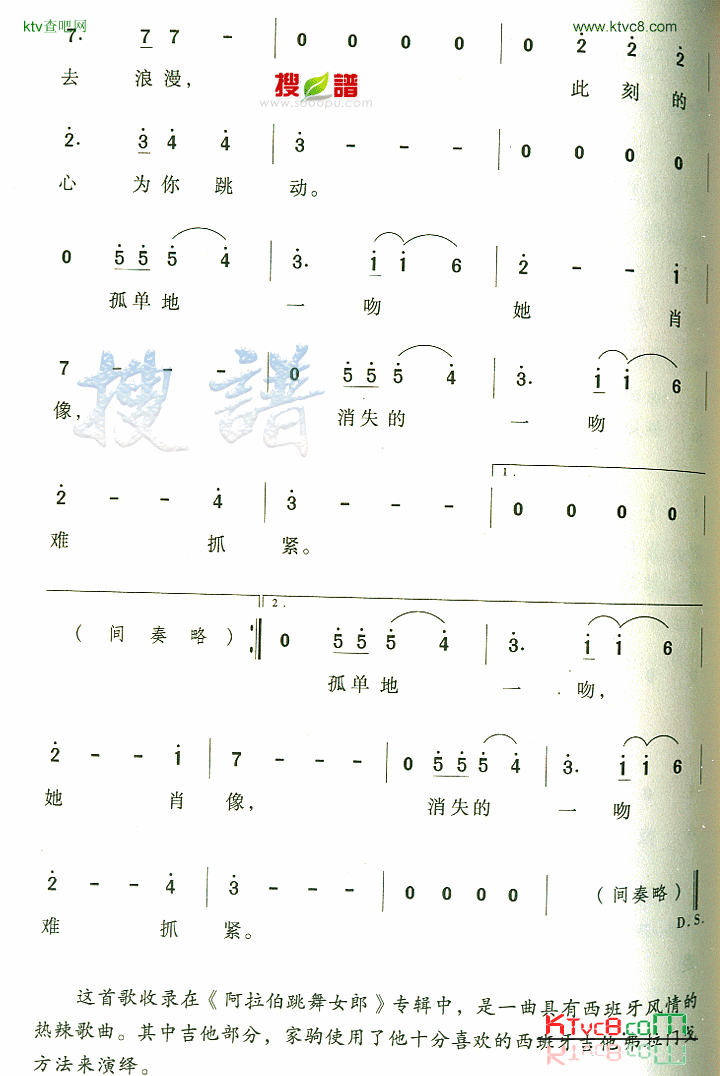 ktv查吧网 www.ktvc8.com
7. 7 7 - 0 0 0 0 0 2 2 2
去 浪漫, 搜谱 此 刻 的
www.sooopu.com
2. 3 4 4 3 - - - 0 0 0 0
心 为你 跳 动。
0 5 5 5 4 3. 1 1 6 2 - - 1
孤单地 一 吻 她 肖
7 - - - 0 5 5 5 4 3. 1 1 6
像, 消失的 一 吻
搜谱
1.
2 - - 4 3 - - - 0 0 0 0
难 抓 紧。
2.
(间奏略) 0 5 5 5 4 3. 1 1 6
孤单地 一 吻,
2 - - 1 7 - - - 0 5 5 5 4 3. 1 1 6
她 肖 像, 消失的 一 吻
2 - - 4 3 - - - 0 0 0 0 (间奏略)
难 抓 紧。 D.S.
这首歌收录在《阿拉伯跳舞女郎》专辑中,是一曲具有西班牙风情的
热辣歌曲。其中吉他部分,家驹使用了他十分喜欢的西班牙吉他弗拉门戈
KTvc8.com
方法来演绎。